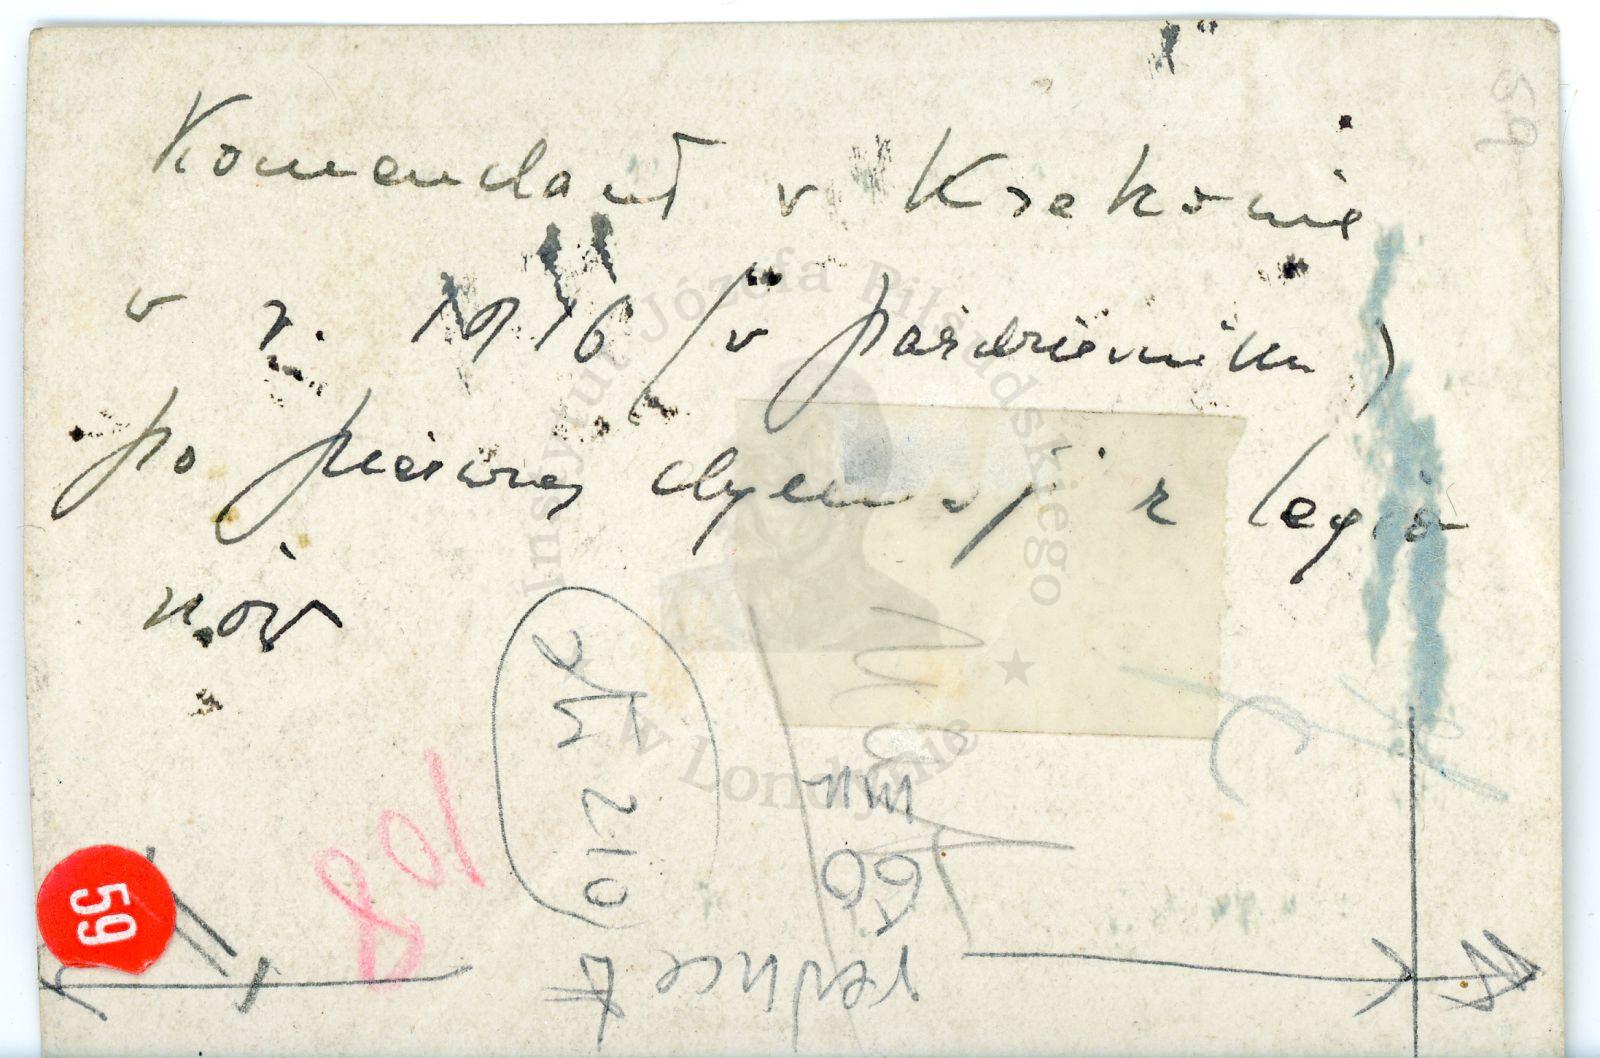 Komendant w Krakowie
w r. 1916 (w październiku)
po pierwszej dymisji z legio
nów
Instytut Józefa Piłsudskiego
w Londynie
59
59
108
210
60
reduce